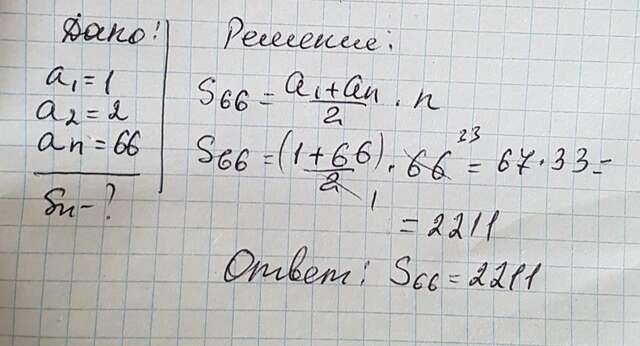 Дано:
a₁=1
a₂=2
an=66
Sn-?
Решение:
S₆₆=(a₁+an)/2·n
S₆₆=(1+66)/2·66=67·33=
33
1
=2211
Ответ: S₆₆=2211